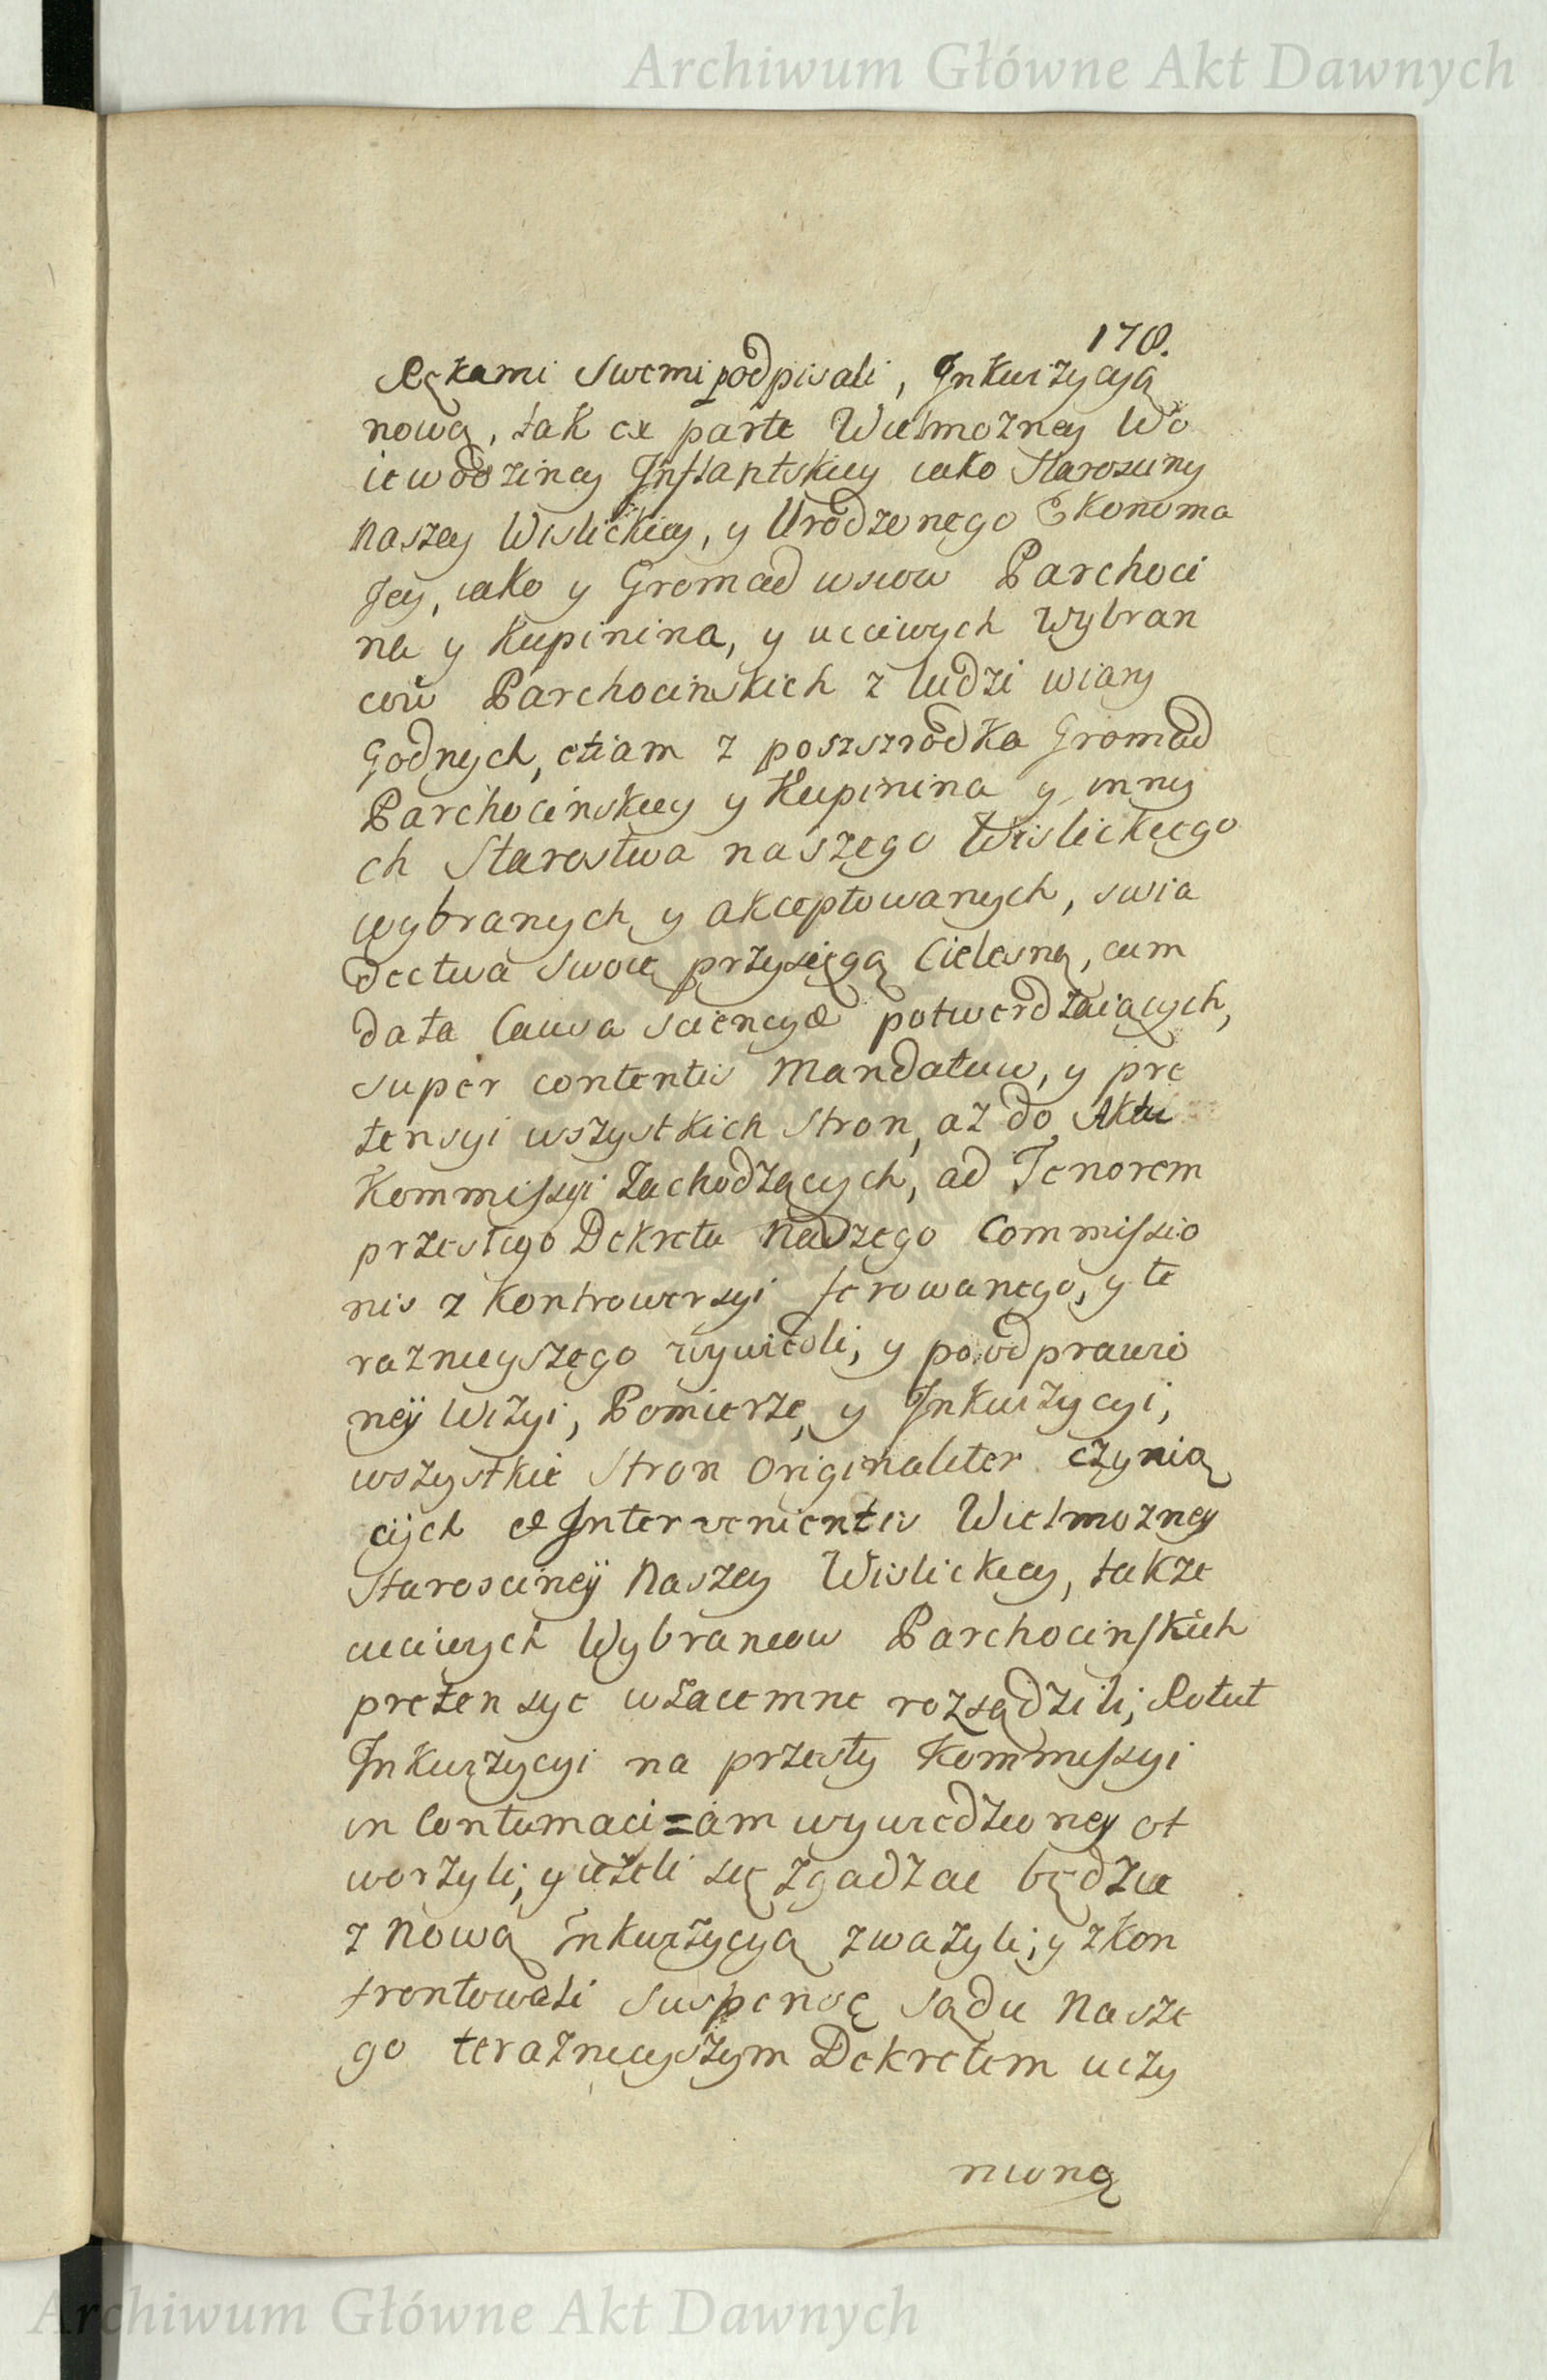 Archiwum Główne Akt Dawnych
178.
Rękami swemi podpisali, Inkwizycyą
nową, tak ex parte Wielmozney Wo
iewodziney Inflantskiey iako Starosciny
naszey Wislickiey, y Urodzonego Ekonoma
Jey, iako y Gromad wsiow Parchoci
na y Kupinina, y ucciwych Wybran
cow Parchocinskich z ludzi wiary
godnych, etiam z poszszrodka Gromad
Parchocinskiey y Kupinina y inny
ch Starostwa naszego Wislickiego
wybranych y akceptowanych, swia
dectwa swoie przysięgą Cielesną, cum
data Causa sciencyæ potwierdzaiących,
super contentis Mandatuw, y pre
tensyi wszystkich stron, az do Aktu
Kommissyi zachodzących, ad Tenorem
przeszłego Dekretu Naszego Commissio
nis z Kontrowersyi ferowanego, y te
raznieyszego wywiedli; y po odprawio
neÿ Wizyi, Pomierze, y Inkwizycyi,
wszystkie stron originaliter czynią
cych et Intervenientis Wielmozney
Starosciney Naszey Wislickiey, takze
ucciwych Wybrancow Parchocinskich
pretensye wzaiemne rozsądzili; Rotuł
Inkwizycyi na przeszły Kommissyi
in Contumaci=am wywiedzioney ot
worzyli, y iezeli się zgadzac będzie
z Nową Inkwizycyą zwazyli; y zkon
frontowali suspensę sądu Nasze
go teraznieyszym Dekretem uczy
nioną
Archiwum Główne Akt Dawnych